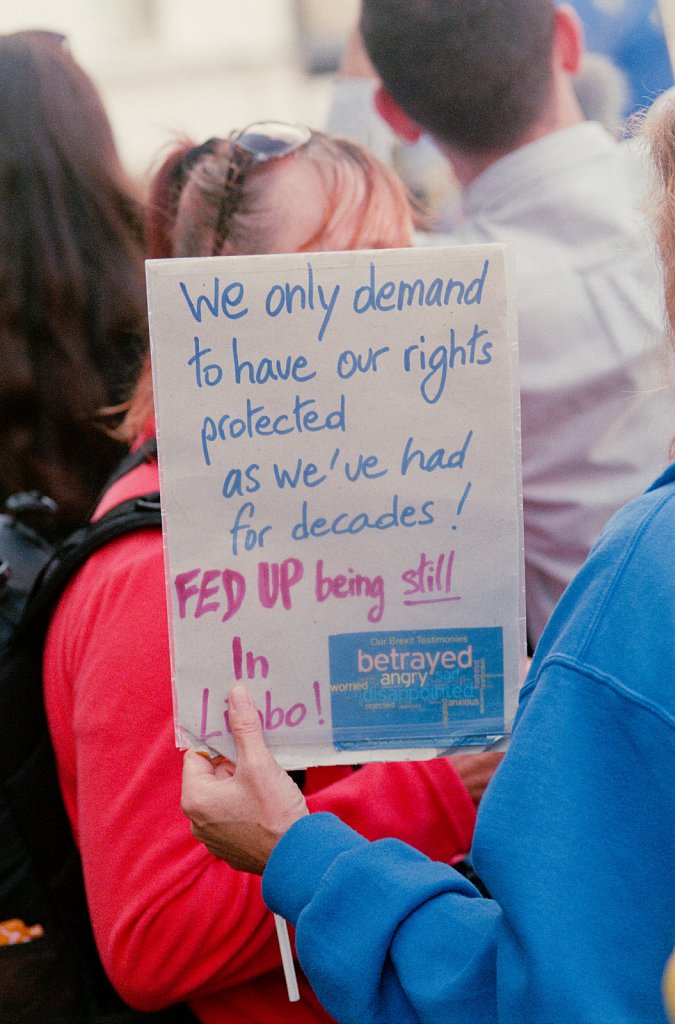 We only demand
to have our rights
protected
as we've had
for decades!
FED UP being still
In
Limbo!
Our Brexit Testimonies
betrayed
angry
worried
disappointed
rejected
anxious